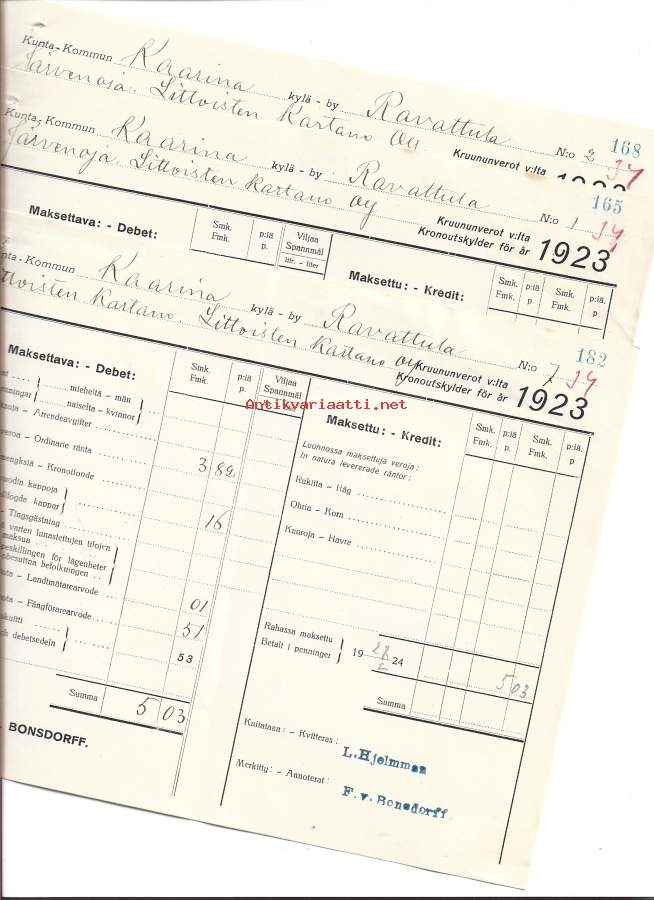 Kunta-Kommun Kaarina kylä - by Ravattula N:o 2 168
Järvenoja. Littoisten Kartano Oy Kruununverot v:lta
Kunta-Kommun Kaarina kylä - by Ravattula N:o 1 165
Järvenoja. Littoisten Kartano Oy Kruununverot v:lta
Kronoutskylder för år 1923
Maksettava: - Debet: Smk. Fmk. p:iä p. Viljaa Spannmål litr. - liter Maksettu: - Kredit: Smk. Fmk. p:iä p. Smk. Fmk. p:iä. p.
Kommun Kaarina kylä - by Ravattula N:o 7 182
Littoisten Kartano. Littoisten Kartano Oy Kruununverot v:lta
Kronoutskylder för år 1923
Maksettava: - Debet: Smk. Fmk. p:iä p. Viljaa Spannmål
Maksettu: - Kredit: Smk. Fmk. p:iä p. Smk. Fmk. p:iä. p
Antikvariaatti.net
mieheltä - män
naiselta - kvinnor
Arrendeavgifter
Ordinarie ränta 3 82
Kronotionde
kappoja
kappar 16
Tingsgästning
varten lunastettujen tilojen
maksua
för lägenheter
befolkningen
Landtmätarearvode 01
Fångförarearvode 51
debetsedeln 53
Summa 5 03
BONSDORFF.
Luonnossa maksettuja veroja:
In natura levererade räntor:
Rukiita - Råg
Ohria - Korn
Kauroja - Havre
Rahassa maksettu
Betalt i penninger 19 28/2 24 5 03
Summa
Kuitataan: - Kvitteras: L. Hjelmman
Merkitty: - Annoterat: F. v. Bonsdorff.